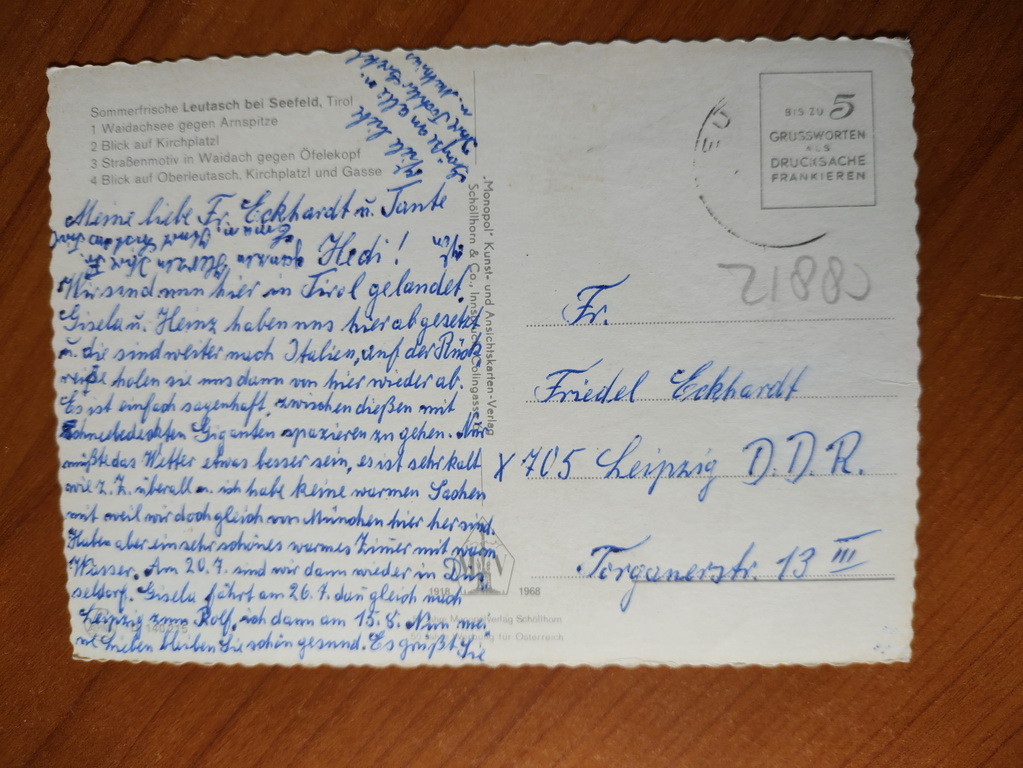 Sommerfrische Leutasch bei Seefeld, Tirol
1 Waidachsee gegen Arnspitze
2 Blick auf Kirchplatzl
3 Straßenmotiv in Waidach gegen Öfelekopf
4 Blick auf Oberleutasch, Kirchplatzl und Gasse
Meine liebe Fr. Eckhardt u. Tante
Hedi!
Wir sind nun hier in Tirol gelandet,
Gisela u. Heinz haben uns hier abgesetzt
u. die sind weiter nach Italien, auf der Rück
reiße holen sie uns dann von hier wieder ab.
Es ist einfach sagenhaft, zwischen dießen mit
Schneebedeckten Giganten spazieren zu gehen. Nur
müßte das Wetter etwas besser sein, es ist sehr kalt
wie z. Z. überall u. ich habe keine warmen Sachen
mit weil wir doch gleich von München hier her sind.
Haben aber ein sehr schönes warmes Zimer mit warm
Wasser. Am 20.7. sind wir dann wieder in Düs
seldorf. Gisela fährt am 26.7. dan gleich nach
Leipzig zum Rolf, ich dann am 15.8. Nun mei
ne Lieben bleiben Sie schön gesund. Es grüßt Sie
Viele liebe
Grüße an alle
"Monopol" Kunst- und Ansichtskarten-Verlag
Schöllhorn & Co., Innsbruck, Colingasse
1918 1968
Monopolverlag Schöllhorn
für Österreich
BIS ZU 5
GRUSSWORTEN
ALS
DRUCKSACHE
FRANKIEREN
21882
Fr.
Friedel Eckhardt
X 705 Leipzig D.D.R.
Torgauerstr. 13 III